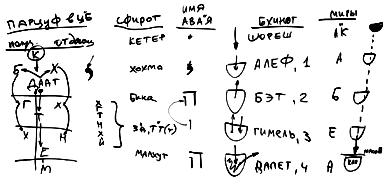 ПАРЦУФ В ЦБ
СФИРОТ
ИМЯ
АВАЯ
БХИНОТ
МИРЫ
К
Б Х
ДААТ
Г Х
Т
Х Н
Е
М
КЕТЕР
ШОРЕШ
АК
ХОХМА
АЛЕФ, 1
А
БИНА
БЭТ, 2
Б
Х
Г
Т
Н
Х
Й
ЗА, Т"Т(Т)
ГИМЕЛЬ, 3
Е
МАЛХУТ
ДАЛЕТ, 4
А